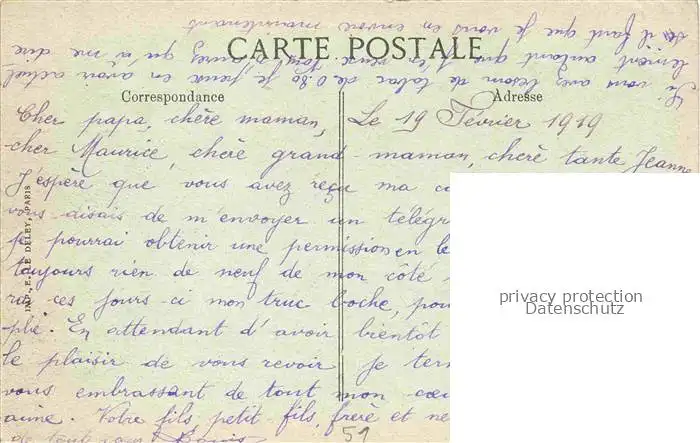 Si vous avez besoin de tabac de 0.80 je peux en avoir actuel
lement autant que j'en veux. Vous n'aurez qu'à me dire
s'il faut que je vous en envoie maintenant
CARTE POSTALE
Correspondance
Adresse
Le 19 Février 1919
Cher papa, chère maman,
cher Maurice, chère grand-maman, chère tante Jeanne
J'espère que vous avez reçu ma
vous disais de m'envoyer un télégr
je pourrai obtenir une permission en le
toujours rien de neuf de mon côté
ces jours-ci mon truc boche, pou
plé. En attendant d'avoir bientôt
le plaisir de vous revoir je ter
vous embrassant de tout mon cœu
aime. Votre fils, petit-fils, frère et ne
de tout
IMP. E. LE DELEY, PARIS
51
privacy protection
Datenschutz